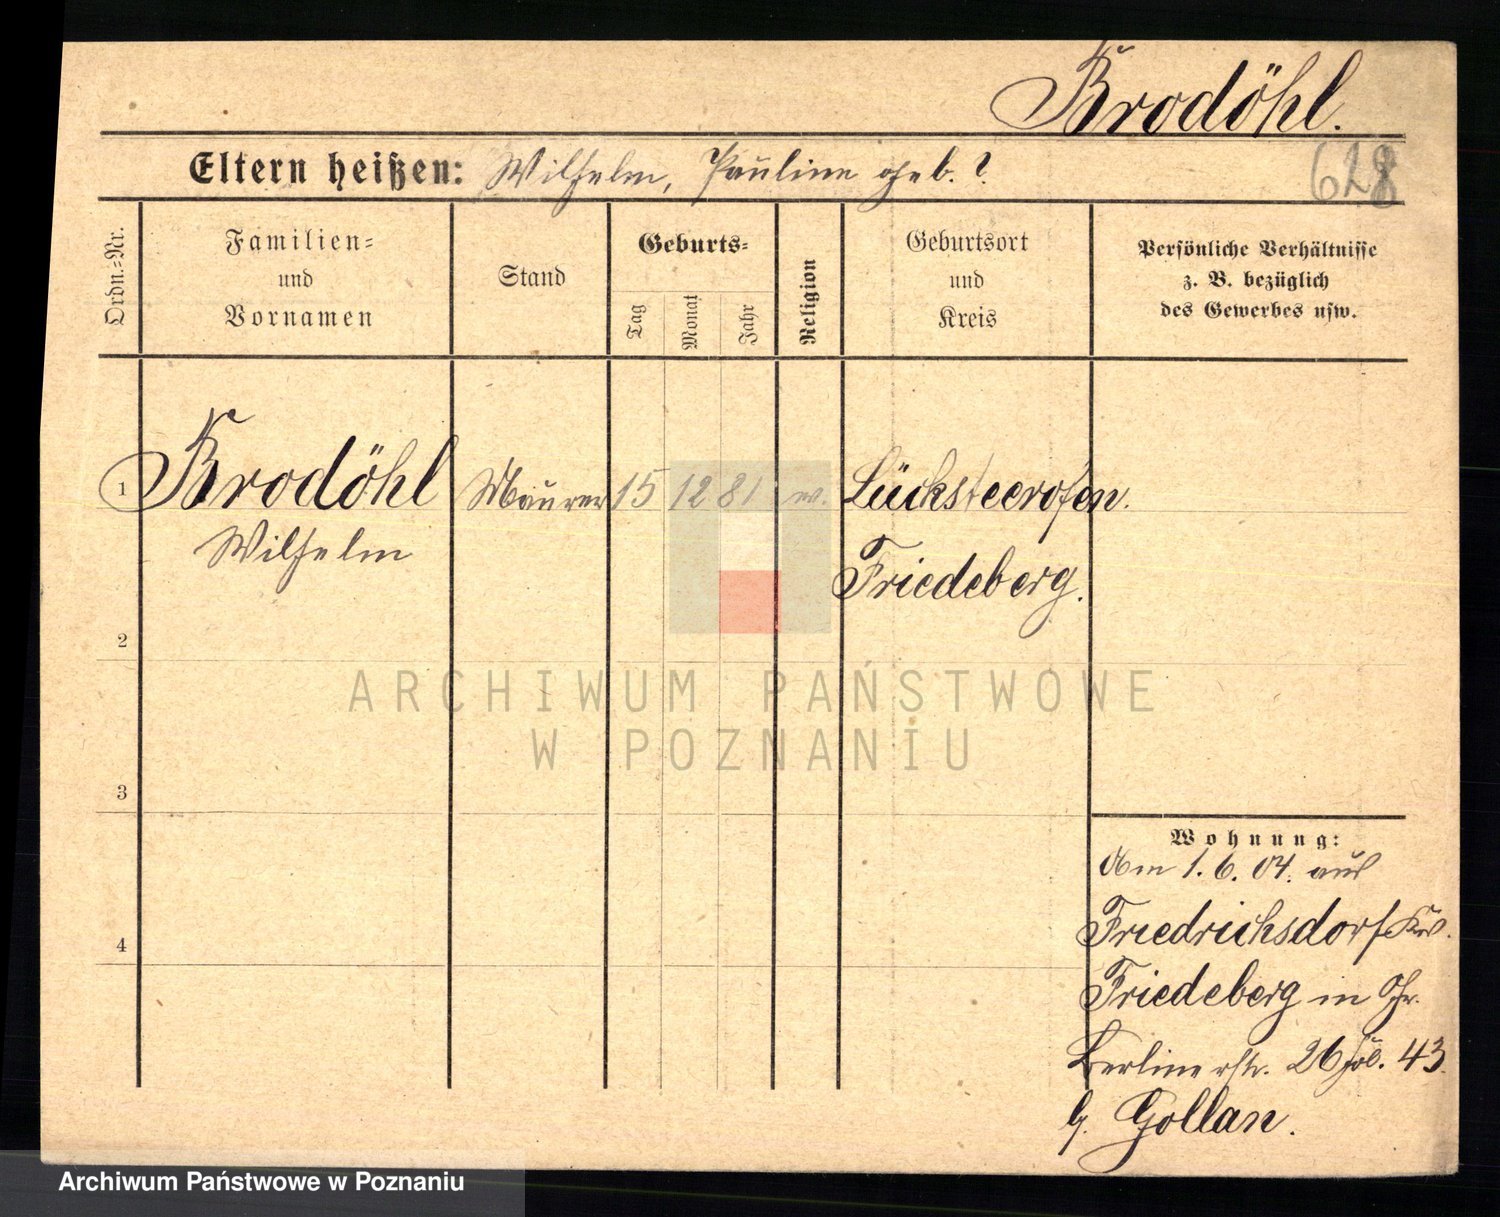 Brodöhl.
Eltern heißen: Wilhelm, Pauline geb. ?
628
Ordn.-Nr.
Familien-
und
Vornamen
Stand
Geburts-
Tag
Monat
Jahr
Religion
Geburtsort
und
Kreis
Persönliche Verhältnisse
z. B. bezüglich
des Gewerbes usw.
1 Brodöhl Maurer 15 12 81 Lücksteerofen.
Wilhelm
Friedeberg.
2
ARCHIWUM PAŃSTWOWE
W POZNANIU
3
Wohnung:
Am 1.6.04. aus
Friedrichsdorf Krs.
4
Friedeberg in
Berlinerstr. 26 43
b. Gollan.
Archiwum Państwowe w Poznaniu